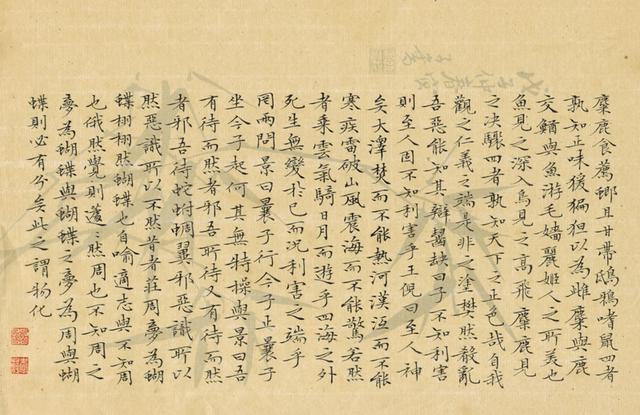 麋鹿食薦蝍且甘帶鴟鴉嗜鼠四者
孰知正味猨猵狙以為雌麋與鹿
交鰌與魚游毛嬙麗姬人之所美也
魚見之深入鳥見之高飛麋鹿見
之決驟四者孰知天下之正色哉自我
觀之仁義之端是非之塗樊然殽亂
吾惡能知其辯齧缺曰子不知利害
則至人固不知利害乎王倪曰至人神
矣大澤焚而不能熱河漢沍而不能
寒疾雷破山風震海而不能驚若然
者乘雲氣騎日月而遊乎四海之外
死生無變於己而況利害之端乎
罔兩問景曰曩子行今子止曩子
坐今子起何其無特操與景曰吾
有待而然者邪吾所待又有待而然
者邪吾待蛇蚹蜩翼邪惡識所以
然惡識所以不然昔者莊周夢為蝴
蝶栩栩然蝴蝶也自喻適志與不知周
也俄然覺則蘧〻然周也不知周之
夢為蝴蝶與蝴蝶之夢為周與蝴
蝶則必有分矣此之謂物化